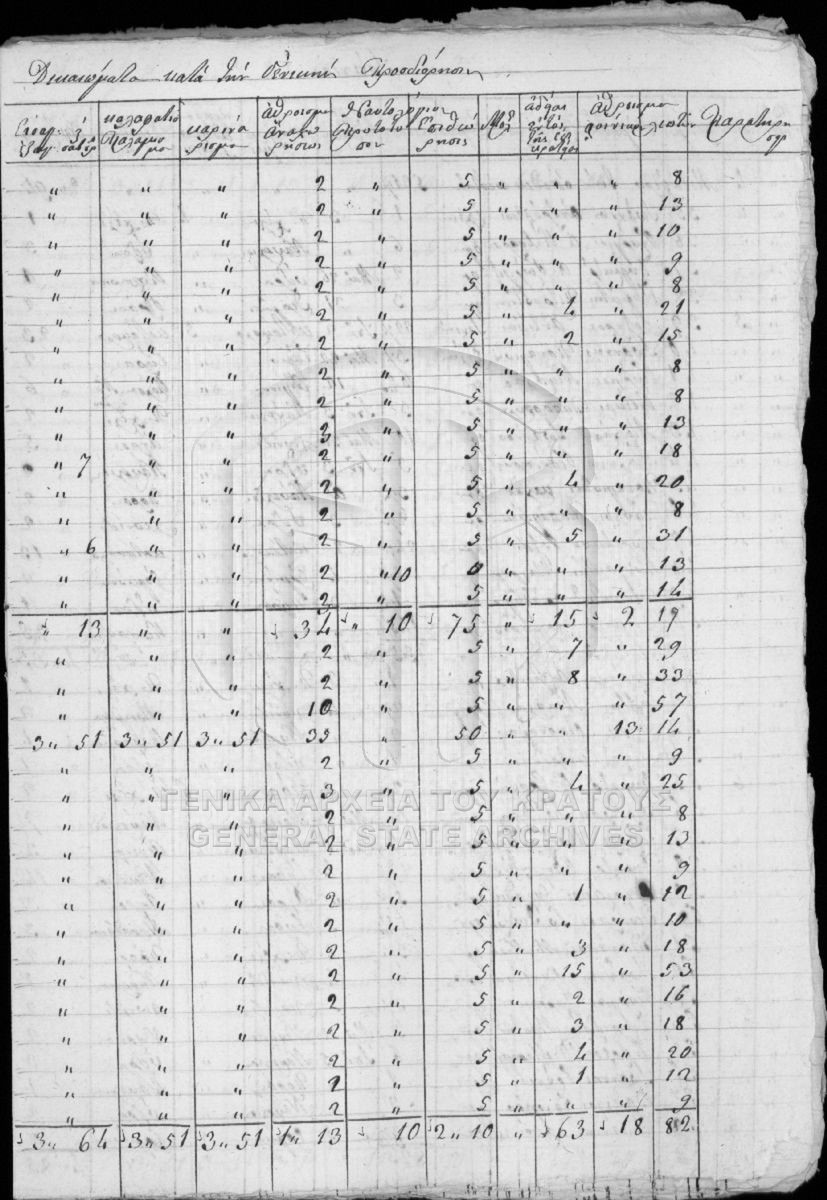 Δικαιώματα κατὰ τὴν Γενικὴν Προσδιόρησιν
καρινά ἄθροισμα Ναυτολόγιον ἄθροισμα
ρισμα φοινίκων λεπτῶν
" " " 2 " 5 " " " 8
" " " 2 " 5 " " " 13
" " " 2 " 5 " " " 10
" " " 2 " 5 " " " 9
" " " 2 " 5 " " " 8
" " " 2 " 5 " 4 " 21
" " " 2 " 5 " 2 " 15
" " " 2 " 5 " " " 8
" " " 2 " 5 " " " 8
" " " 2 " 5 " " " 13
" 7 " " 2 " 5 " " " 18
" " " 2 " 5 " 4 " 20
" " " 2 " 5 " " " 8
" 6 " " 2 " 5 " 5 " 31
" " " 2 " 10 0 " " " 13
" " " 5 " " " 14
" 13 " " 34 " 10 75 " 15 2 19
" " " 2 " 5 " 7 " 29
" " " 2 " 5 " 8 " 33
" " " 10 " 5 " " " 57
3 " 51 3 " 51 3 " 51 35 " 50 " " 13 14
" " " 2 " 5 " " " 9
" " " 3 " 5 " 4 " 25
ΓΕΝΙΚΑ ΑΡΧΕΙΑ ΤΟΥ ΚΡΑΤΟΥΣ
" " " 2 " 5 " " " 8
GENERAL STATE ARCHIVES
" " " 2 " 5 " " " 13
" " " 2 " 5 " " " 9
" " " 2 " 5 " 1 " 12
" " " 2 " 5 " " " 10
" " " 2 " 5 " 3 " 18
" " " 2 " 5 " 15 " 53
" " " 2 " 5 " 2 " 16
" " " 2 " 5 " 3 " 18
" " " 2 " 5 " 4 " 20
" " " 2 " 5 " 1 " 12
" " " 2 " 5 " " " 9
3 " 64 3 " 51 3 " 51 1 " 13 " 10 2 " 10 " 63 18 82